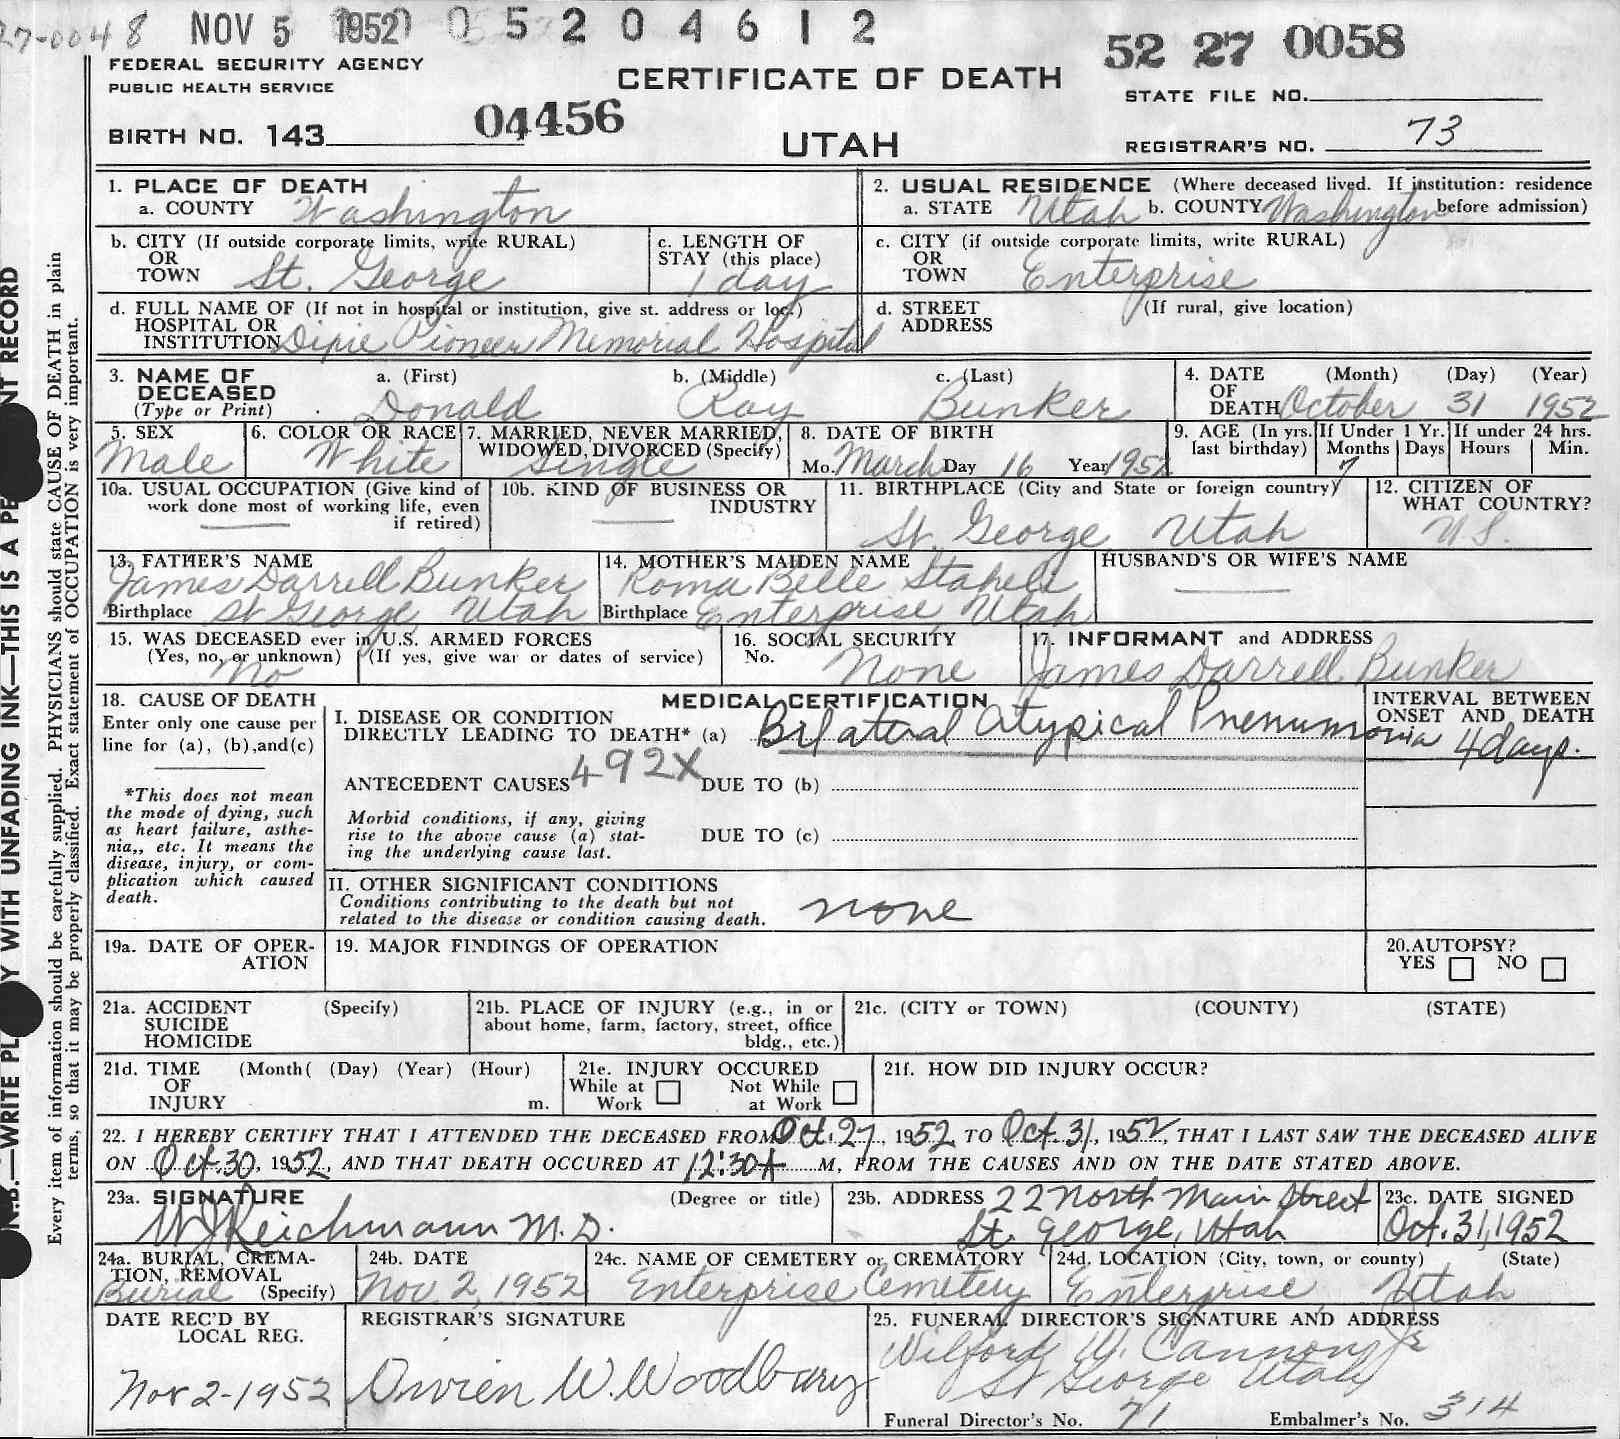 27-0048 NOV 5 1952 0 5 2 0 4 6 1 2
52 27 0058
FEDERAL SECURITY AGENCY
PUBLIC HEALTH SERVICE
CERTIFICATE OF DEATH
STATE FILE NO.
BIRTH NO. 143 04456
UTAH
REGISTRAR'S NO. 73
1. PLACE OF DEATH
a. COUNTY Washington
2. USUAL RESIDENCE (Where deceased lived. If institution: residence before admission)
a. STATE Utah b. COUNTY Washington
b. CITY (If outside corporate limits, write RURAL)
OR
TOWN St. George
c. LENGTH OF
STAY (this place)
1 day
c. CITY (if outside corporate limits, write RURAL)
OR
TOWN Enterprise
d. FULL NAME OF (If not in hospital or institution, give st. address or loc.)
HOSPITAL OR
INSTITUTION Dixie Pioneer Memorial Hospital
d. STREET (If rural, give location)
ADDRESS
3. NAME OF
DECEASED
(Type or Print)
a. (First) b. (Middle) c. (Last)
Donald Ray Bunker
4. DATE (Month) (Day) (Year)
OF
DEATH October 31 1952
5. SEX
Male
6. COLOR OR RACE
White
7. MARRIED, NEVER MARRIED,
WIDOWED, DIVORCED (Specify)
Single
8. DATE OF BIRTH
Mo. March Day 16 Year 1952
9. AGE (In yrs.
last birthday)
If Under 1 Yr.
Months Days
7
If under 24 hrs.
Hours Min.
10a. USUAL OCCUPATION (Give kind of
work done most of working life, even
if retired)
10b. KIND OF BUSINESS OR
INDUSTRY
11. BIRTHPLACE (City and State or foreign country)
St. George Utah
12. CITIZEN OF
WHAT COUNTRY?
U.S.
13. FATHER'S NAME
James Darrell Bunker
Birthplace St George, Utah
14. MOTHER'S MAIDEN NAME
Roma Belle Staheli
Birthplace Enterprise, Utah
HUSBAND'S OR WIFE'S NAME
15. WAS DECEASED ever in U.S. ARMED FORCES
(Yes, no, or unknown) (If yes, give war or dates of service)
No
16. SOCIAL SECURITY
No. None
17. INFORMANT and ADDRESS
James Darrell Bunker
18. CAUSE OF DEATH
Enter only one cause per
line for (a), (b), and (c)
*This does not mean
the mode of dying, such
as heart failure, asthe-
nia,, etc. It means the
disease, injury, or com-
plication which caused
death.
MEDICAL CERTIFICATION
I. DISEASE OR CONDITION
DIRECTLY LEADING TO DEATH* (a) Bilateral Atypical Pnenumonia
INTERVAL BETWEEN
ONSET AND DEATH
4 days.
ANTECEDENT CAUSES 492X DUE TO (b)
Morbid conditions, if any, giving
rise to the above cause (a) stat-
ing the underlying cause last.
DUE TO (c)
II. OTHER SIGNIFICANT CONDITIONS
Conditions contributing to the death but not
related to the disease or condition causing death.
none
19a. DATE OF OPER-
ATION
19. MAJOR FINDINGS OF OPERATION
20. AUTOPSY?
YES NO
21a. ACCIDENT (Specify)
SUICIDE
HOMICIDE
21b. PLACE OF INJURY (e.g., in or
about home, farm, factory, street, office
bldg., etc.)
21c. (CITY or TOWN) (COUNTY) (STATE)
21d. TIME (Month( (Day) (Year) (Hour)
OF
INJURY m.
21e. INJURY OCCURED
While at Work Not While at Work
21f. HOW DID INJURY OCCUR?
22. I HEREBY CERTIFY THAT I ATTENDED THE DECEASED FROM Oct. 27, 1952 TO Oct. 31, 1952, THAT I LAST SAW THE DECEASED ALIVE
ON Oct 30, 1952, AND THAT DEATH OCCURED AT 12:30 A M, FROM THE CAUSES AND ON THE DATE STATED ABOVE.
23a. SIGNATURE (Degree or title)
W J Reichmann M.D.
23b. ADDRESS 22 North Main Street
St. George, Utah
23c. DATE SIGNED
Oct. 31, 1952
24a. BURIAL, CREMA-
TION, REMOVAL
Burial (Specify)
24b. DATE
Nov 2, 1952
24c. NAME OF CEMETERY or CREMATORY
Enterprise Cemetery
24d. LOCATION (City, town, or county) (State)
Enterprise, Utah
DATE REC'D BY
LOCAL REG.
Nov 2-1952
REGISTRAR'S SIGNATURE
W. Woodbury
25. FUNERAL DIRECTOR'S SIGNATURE AND ADDRESS
Wilford W. Cannon Jr
St George Utah
Funeral Director's No. 71 Embalmer's No. 314
N.B.—WRITE PL Y WITH UNFADING INK—THIS IS A PE NT RECORD
Every item of information should be carefully supplied. PHYSICIANS should state CAUSE OF DEATH in plain
terms, so that it may be properly classified. Exact statement of OCCUPATION is very important.